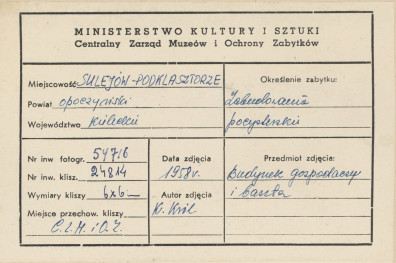 MINISTERSTWO KULTURY I SZTUKI
Centralny Zarząd Muzeów i Ochrony Zabytków
Miejscowość SULEJÓW-PODKLASZTORZE
Powiat opoczyński
Województwo kieleckie
Określenie zabytku:
Zabudowania
pocysterskie
Nr inw fotogr. 54716
Nr inw. klisz. 24814
Wymiary kliszy 6x6
Miejsce przechow. kliszy
C.Z.M.iO.Z.
Data zdjęcia
1958 r.
Autor zdjęcia
K. Król
Przedmiot zdjęcia:
Budynek gospodarczy
i baszta